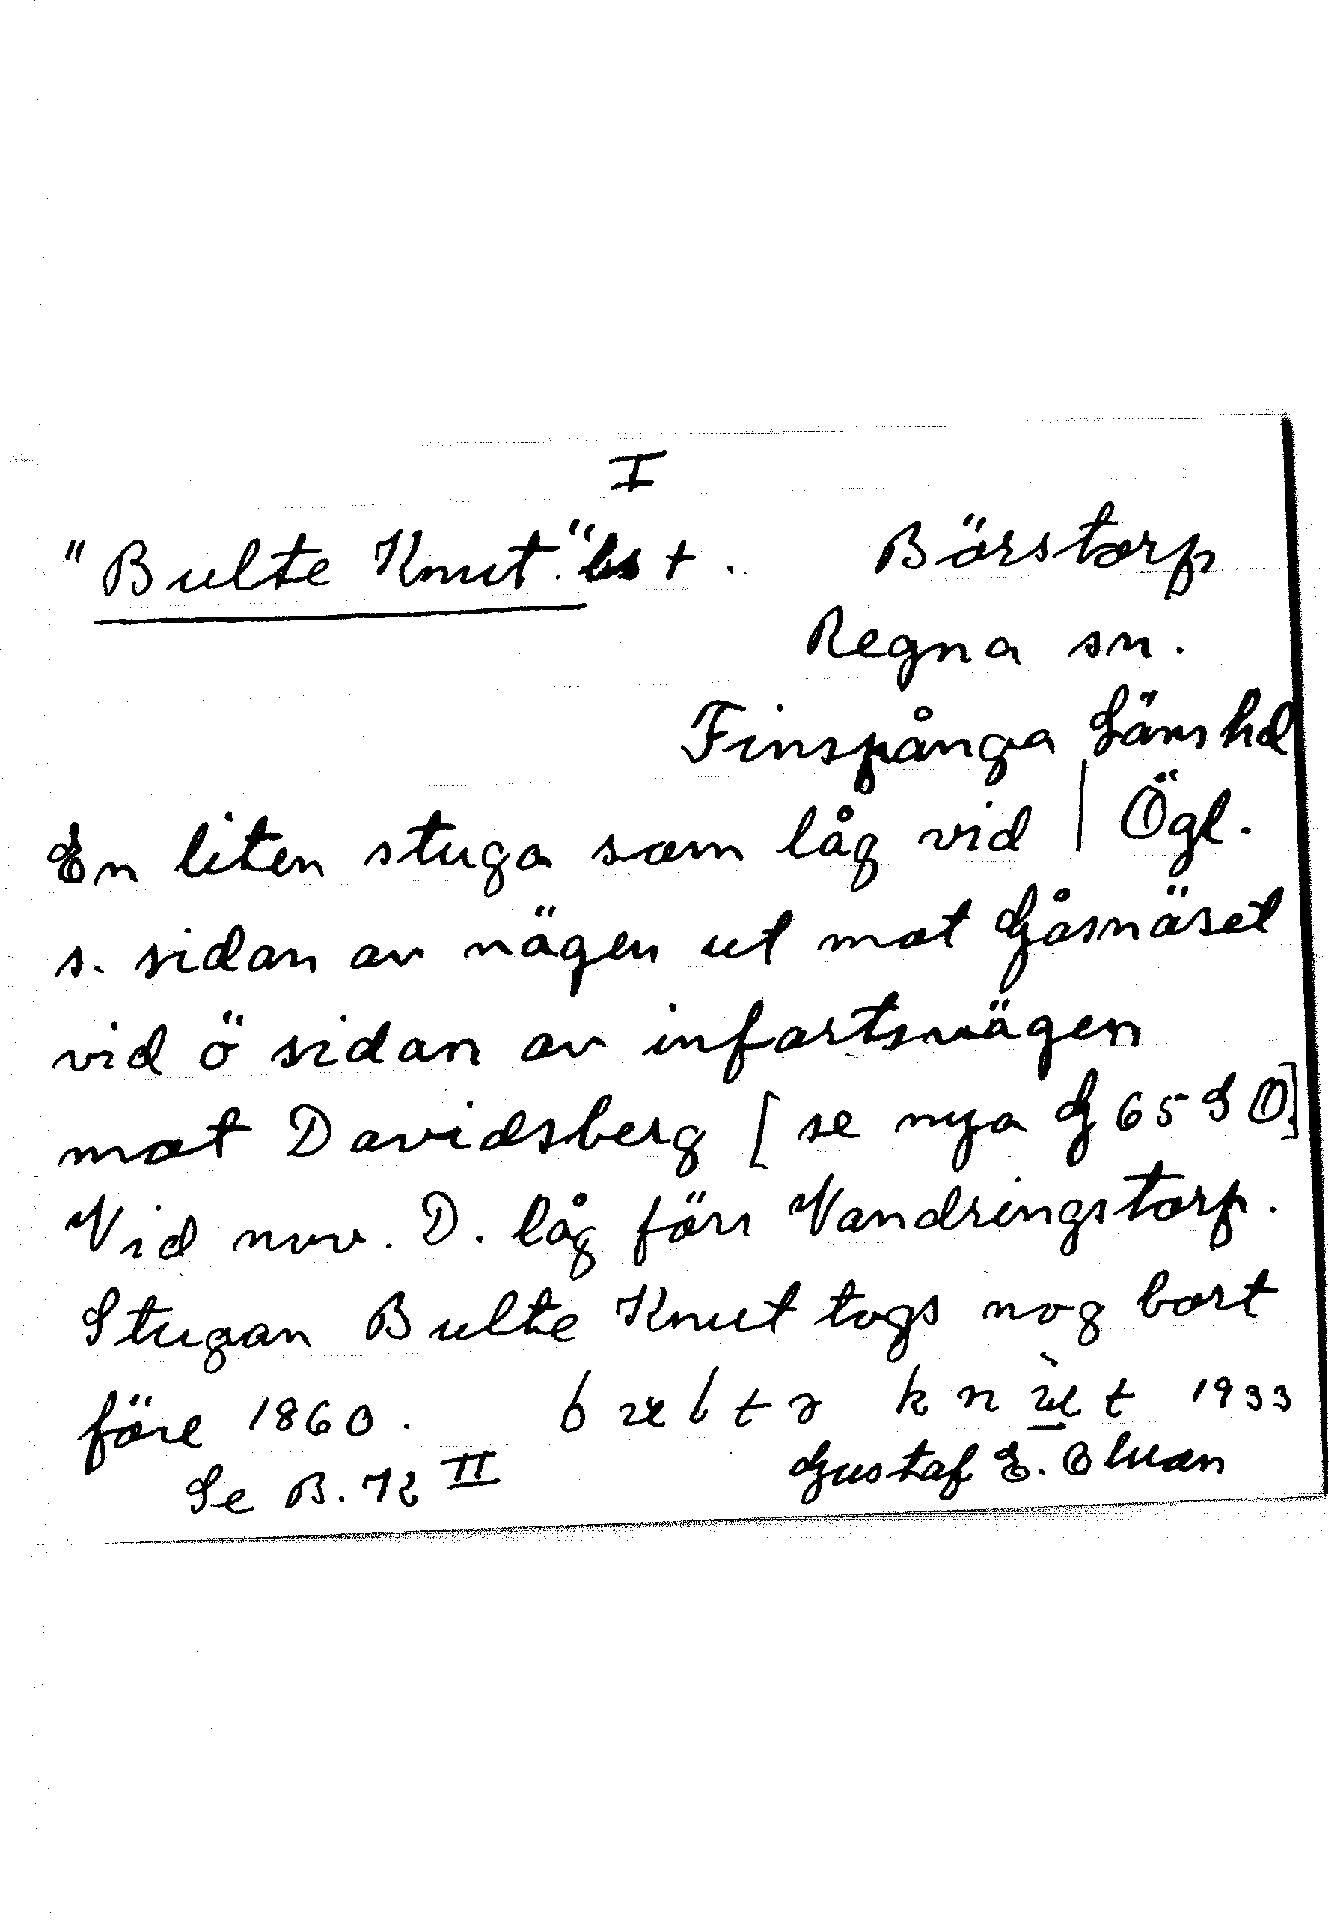 I
"Bulte Knut." bs + . Börstorp
Regna sn.
Finspånga Läns hd
En liten stuga som låg vid | Ögl.
s. sidan av vägen ut mot Gåsnäset
vid ö sidan av infartsvägen
mot Davidsberg [se nya G 65 SO]
Vid nuv. D. låg förr Vandringstorp.
Stugan Bulte Knut togs nog bort
före 1860. 1933
Se B. 72 II Gustaf E.